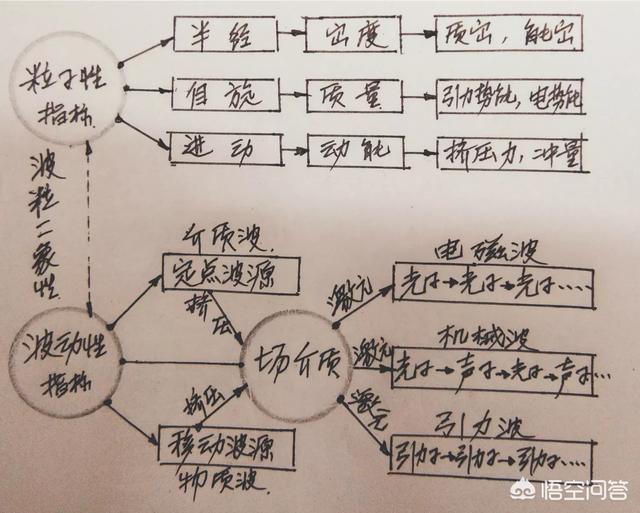 半径 密度 质密，能密
粒子性
指标
自旋 质量 引力势能，电势能
进动 动能 挤压力，冲量
波粒二象性
介质波
定点波源
挤压
电磁波
激元
光子→光子→光子……
波动性
指标
场介质
机械波
激元
光子→声子→光子→声子…
挤压
激元
移动波源
物质波
引力波
引力子→引力子→引力子……
悟空问答